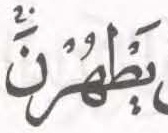 يَطْهُرْنَۚ